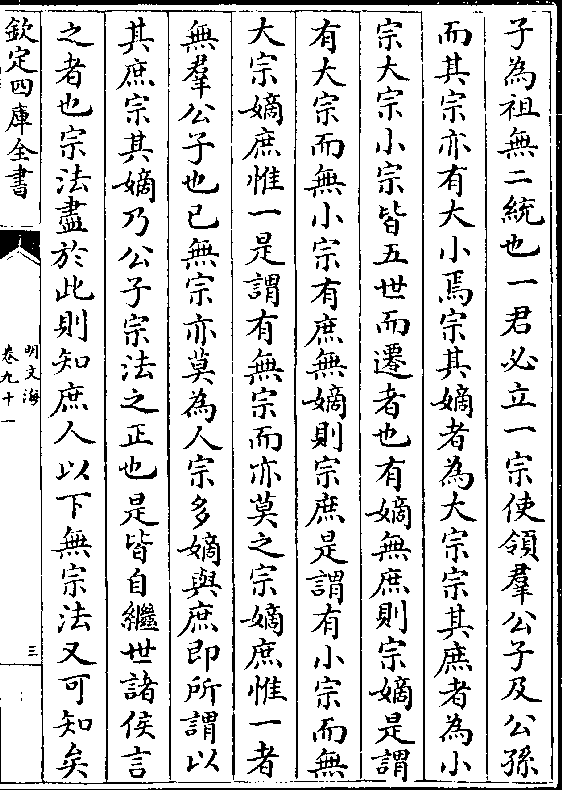 子為祖無二統也一君必立一宗使領羣公子及公孫
而其宗亦有大小焉宗其嫡者為大宗宗其庶者為小
宗大宗小宗皆五世而遷者也有嫡無庶則宗嫡是謂
有大宗而無小宗有庶無嫡則宗庶是謂有小宗而無
大宗嫡庶惟一是謂有無宗而亦莫之宗嫡庶惟一者
無羣公子也已無宗亦莫為人宗多嫡與庶即所謂以
其庶宗其嫡乃公子宗法之正也是皆自繼世諸侯言
之者也宗法盡於此則知庶人以下無宗法又可知矣
欽定四庫全書
明文海
卷九十一
三